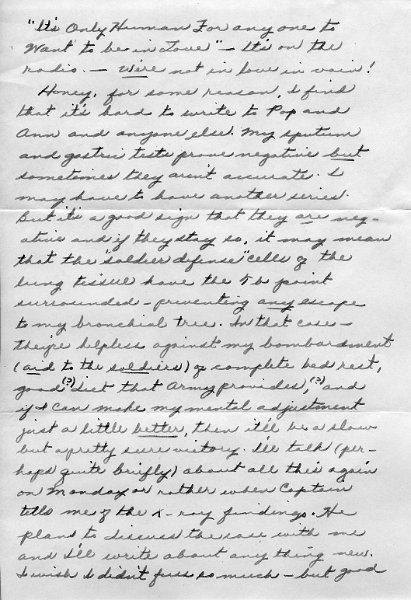 "It's Only Human For anyone to
Want to be in Love" - It's on the
radio. - We're not in love in vain!
Honey, for some reason, I find
that it's hard to write to Pop and
Ann and anyone else. My sputum
and gastric tests prove negative but
sometimes they aren't accurate. I
may have to have another series.
But it's a good sign that they are neg-
ative and if they stay so, it may mean
that the "soldier dfense" cells of the
lung tissue have the Tb point
surrounded - preventing any escape
to my bronchial tree. In that case -
they're helpless against my bombardment
(aid to the soldiers) of complete bed rest,
good (?) diet that Army provides, (?) and
if I can make my mental adjustment
just a little better, then it'll be a slow
but a pretty sure victory. I'll talk (per-
haps quite briefly) about all this again
on Monday or rather when Captain
tells me of the x-ray findings. He
plans to discuss the case with me
and I'll write about anything new.
I wish I didn't fuss so much - but good